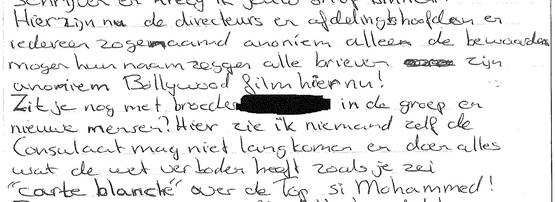 schrijver en kreeg ik jouw brief binnen!
Hier zijn nu de directeurs en afdelingshoofden en
iedereen zogenaamd anoniem alleen de bewaarders
mogen hun naam zeggen alle brieven zijn
anoniem Bollywood film hier nu!
Zit je nog met broeder in de groep en
nieuwe mensen? Hier zie ik niemand zelf de
Consulaat mag niet langkomen en doen alles
wat de wet verboden heeft zoals je zei
"carte blanche" over de Top si Mohammed!